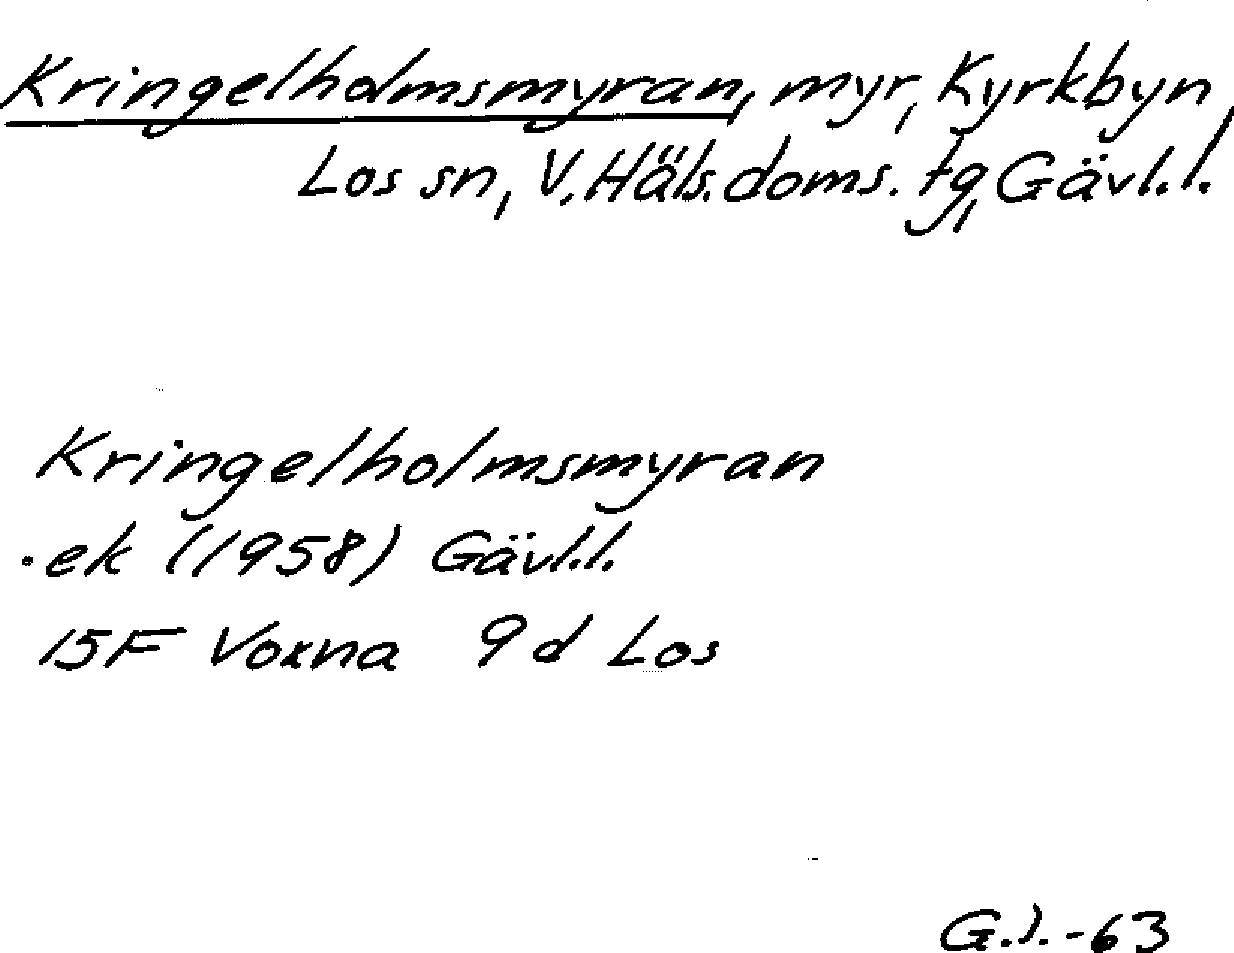 Kringelholmsmyran, myr, Kyrkbyn,
Los sn, V. Häls. doms. tg, Gävl.l.
Kringelholmsmyran
·ek (1958) Gävl.l.
15F Voxna 9d Los
G.J.-63